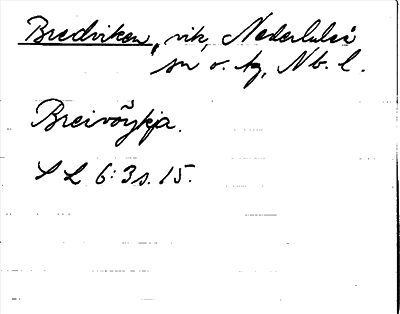 Bredviken, vik, Nederluleå
sn o. tg, Nb. l.
Breivöykja.
SL 6:3 s. 15.